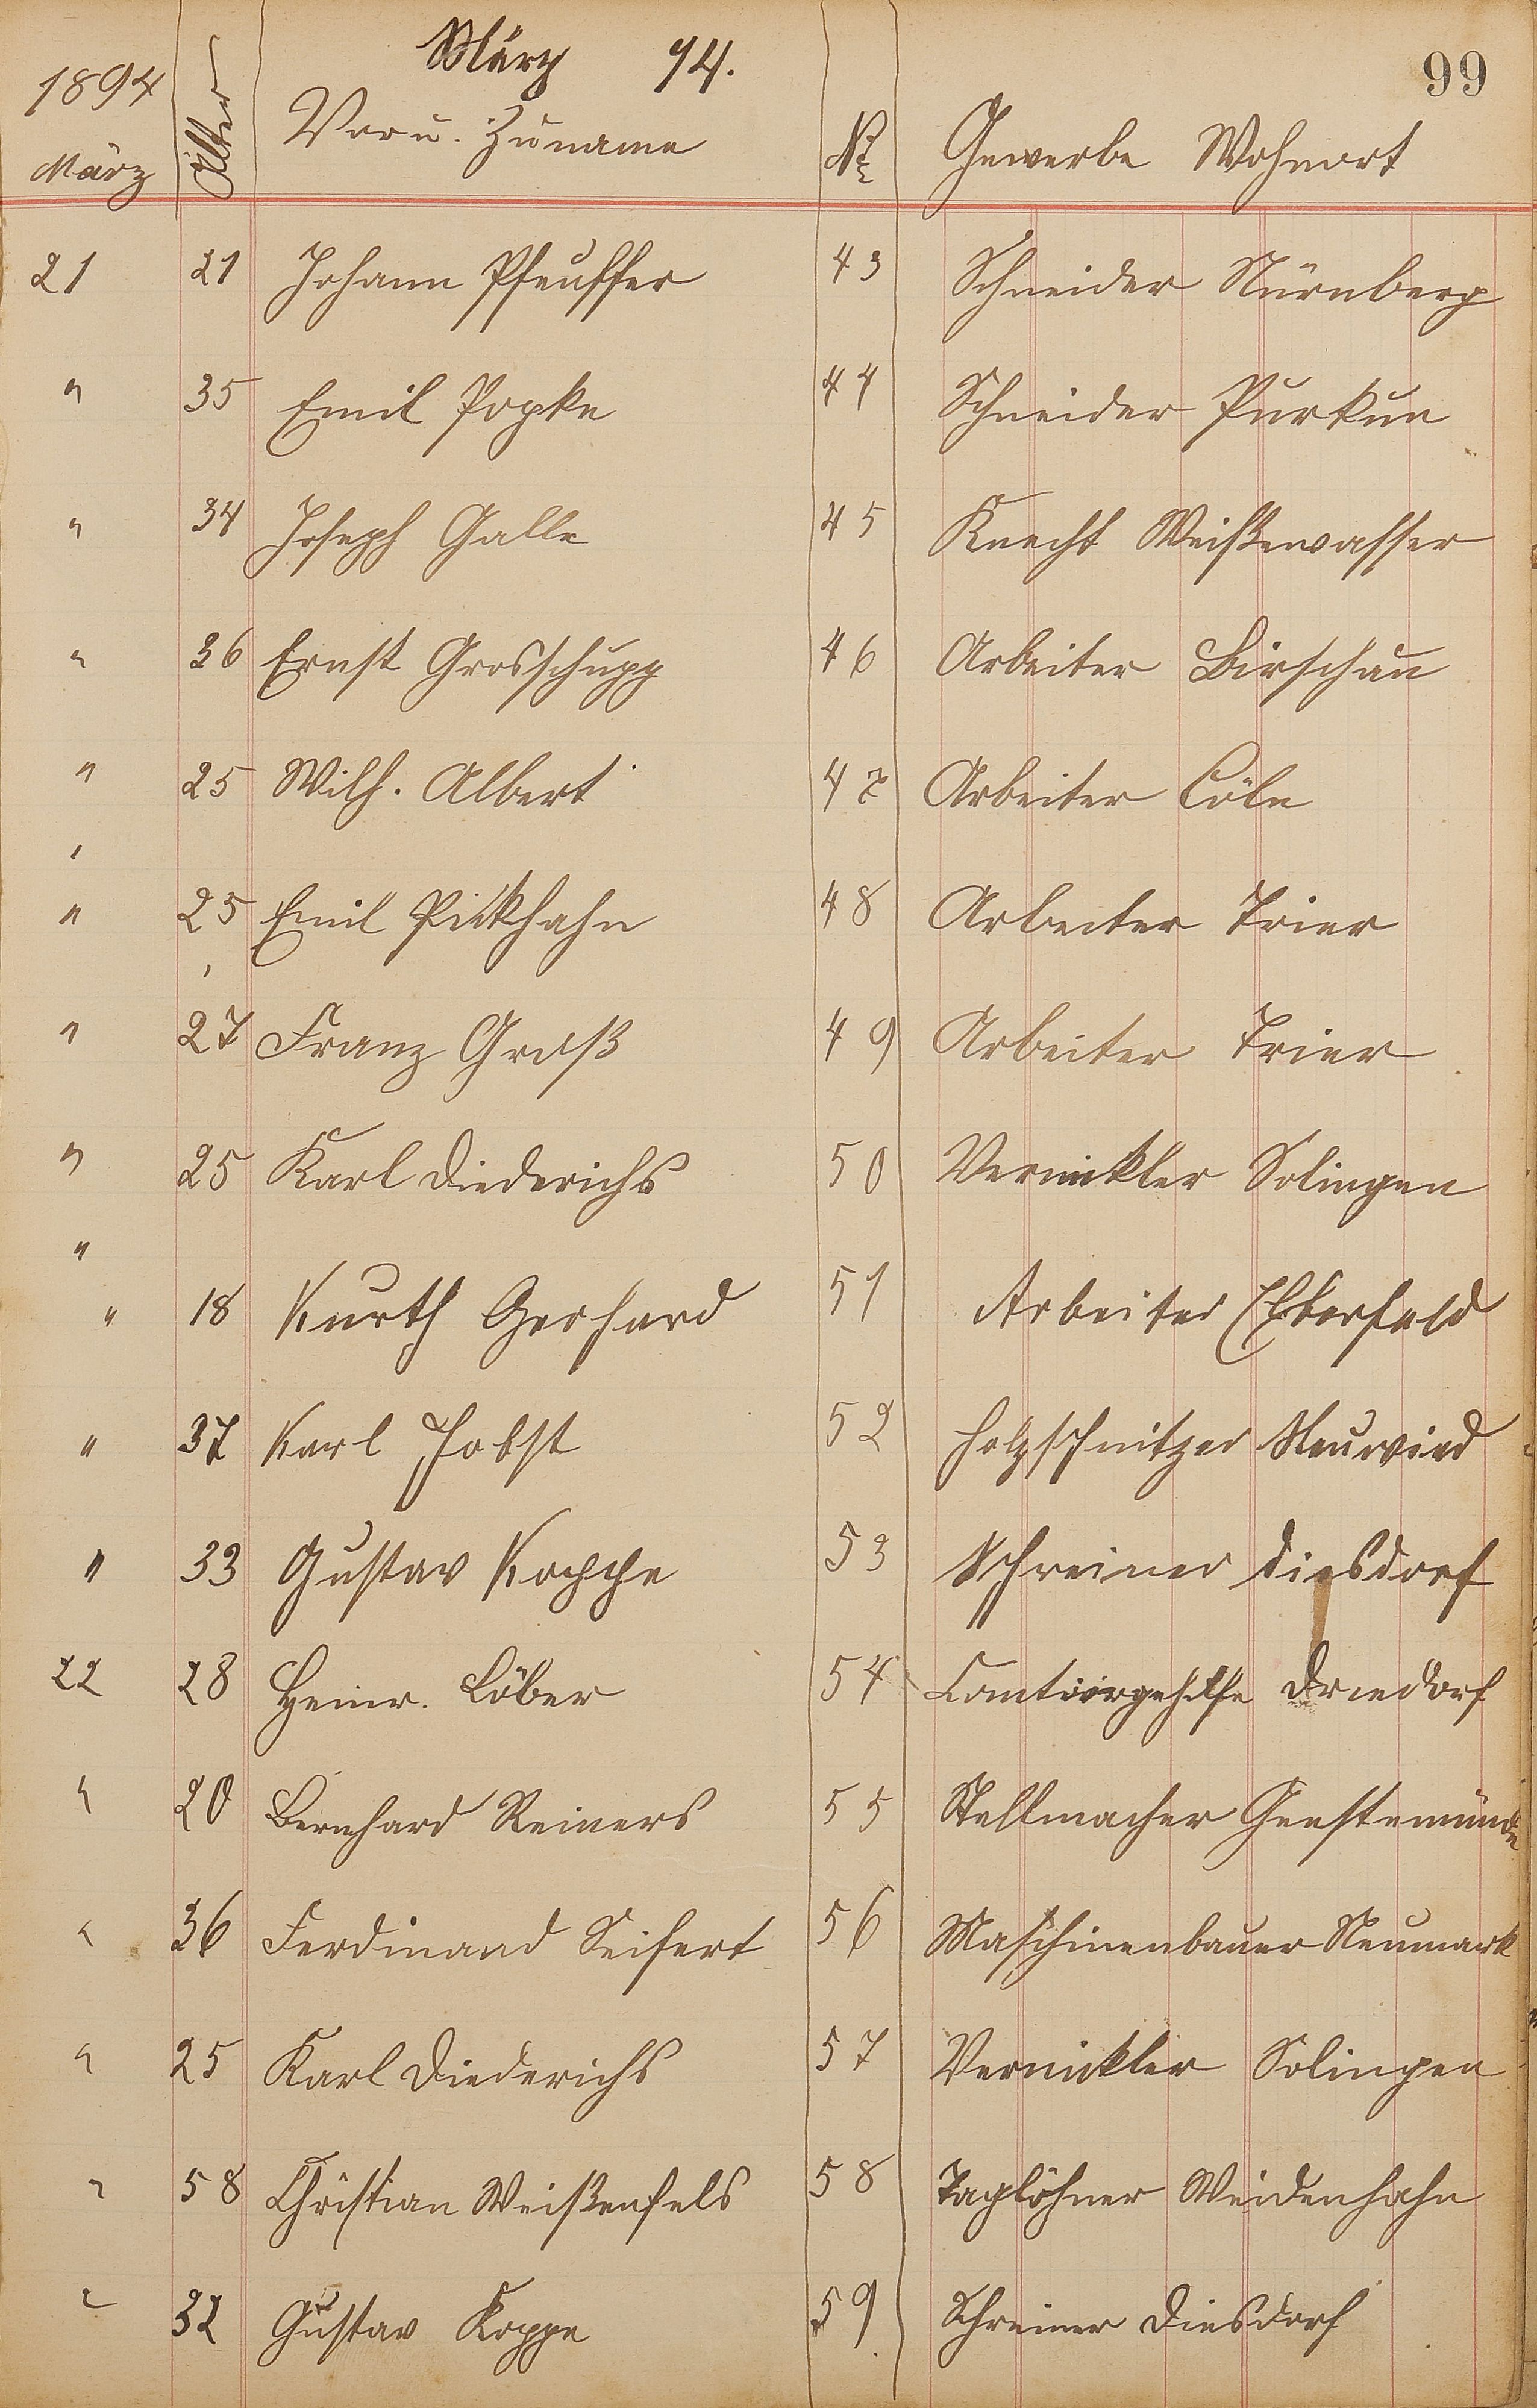 März 94.
99
1894
März Alter Vor u. Zuname No Gewerbe Wohnort
21 21 Johann Pfeuffer 43 Schneider Nürnberg
" 35 Emil Popke 44 Schneider
" 34 Joseph Galle 45 Knecht Weißewasser
" 36 Ernst Grosschupp 46 Arbeiter Birschau
" 25 Wilh. Albert 47 Arbeiter Cöln
" 25 Emil Pickhahn 48 Arbeiter Trier
" 27 Franz Groß 49 Arbeiter Trier
" 25 Karl Diederichs 50 Vernickler Solingen
"
" 18 Kurth Gerhard 51 Arbeiter Elberfeld
" 37 Karl Jobst 52 Holzschnitzer Neuwied
" 33 Gustav Koppe 53 Schreiner Diesdorf
22 28 Heinr. Löber 54 Comtoirgehilfe Driedorf
" 20 Bernhard Reiners 55 Stellmacher Geestemünde
" 36 Ferdinand Seifert 56 Maschinenbauer Neumark
" 25 Karl Diederichs 57 Vernickler Solingen
" 58 Christian Weißenfels 58 Taglöhner Weidenhahn
" 32 Gustav Koppe 59 Schreiner Diesdorf